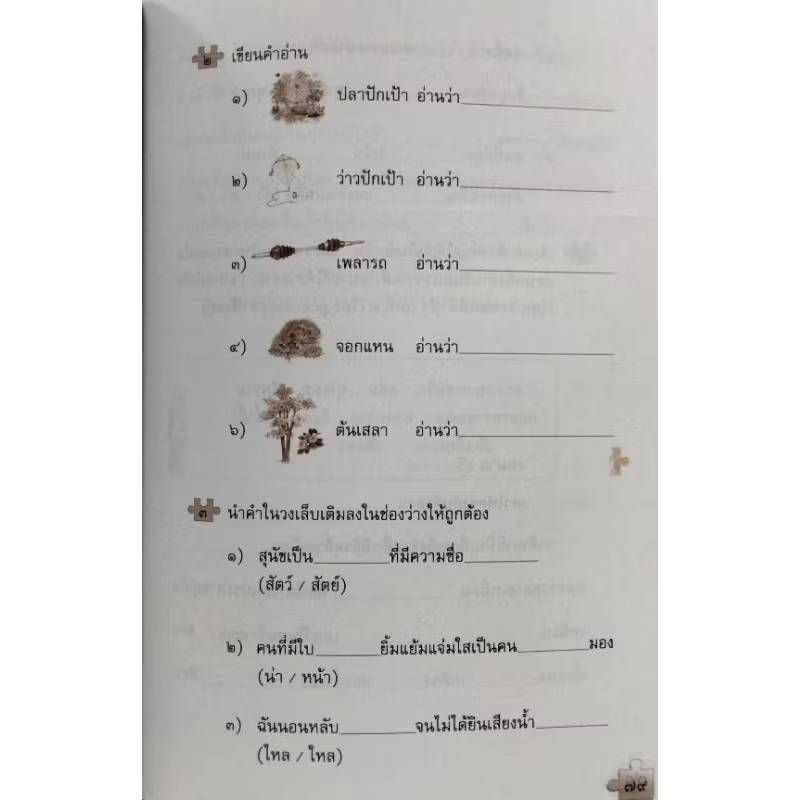 ๒ เขียนคำอ่าน
๑) ปลาปักเป้า อ่านว่า
๒) ว่าวปักเป้า อ่านว่า
๓) เพลารถ อ่านว่า
๔) จอกแหน อ่านว่า
๖) ต้นเสลา อ่านว่า
๓ นำคำในวงเล็บเติมลงในช่องว่างให้ถูกต้อง
๑) สุนัขเป็น________ที่มีความซื่อ________
(สัตว์ / สัตย์)
๒) คนที่มีใบ________ยิ้มแย้มแจ่มใสเป็นคน________มอง
(น่า / หน้า)
๓) ฉันนอนหลับ________จนไม่ได้ยินเสียงน้ำ________
(ไหล / ใหล)
๗๙